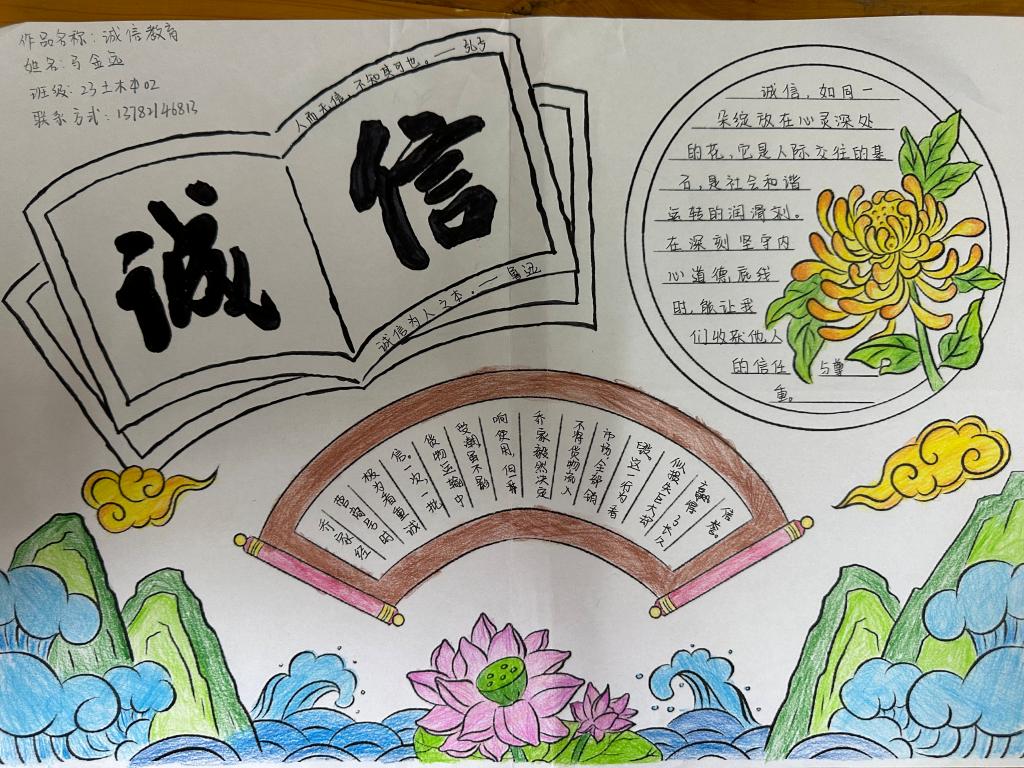 作品名称：诚信教育
姓名：马金远
班级：23土木本02
联系方式：13782146813
人而无信，不知其可也。——孔子
诚信
诚信为人之本。——鲁迅
诚信，如同一
朵绽放在心灵深处
的花，它是人际交往的基
石，是社会和谐
运转的润滑剂。
在深刻坚守内
心道德底线
时，能让我
们收获他人
的信任与尊
重。
乔家经
营商号时
极为看重诚
信。一次，一批
货物运输中
受潮虽不影
响使用，但乔
乔家毅然决定
不将货物流入
市场，全部销
毁，这一行为看
似损失巨大却
赢得了大众
信誉。